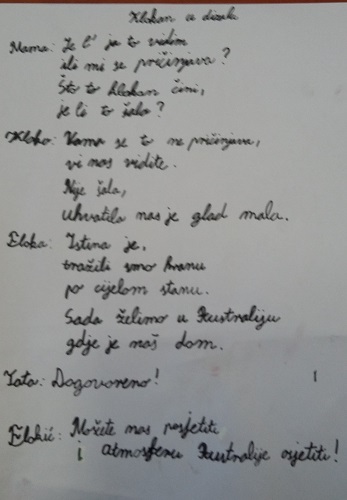 Klokan iz dizala
Mama: Je l' ja to vidim
ili mi se pričinjava?
Što to klokan čini,
je li to šala?
Kloko: Vama se to ne pričinjava,
vi nas vidite.
Nije šala,
uhvatila nas je glad mala.
Eloka: Istina je,
tražili smo hranu
po cijelom stanu.
Sada želimo u Australiju
gdje je naš dom.
Tata: Dogovoreno!
Elokić: Možete nas posjetiti
i atmosferu Australije osjetiti!